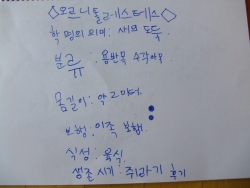 ◇오르니톨레스테스◇
학명의 의미: 새의 도둑
분류: 용반목 수각아목
몸길이: 약 2미터.
보행: 이족 보행.
식성: 육식
생존시기: 쥐라기 후기